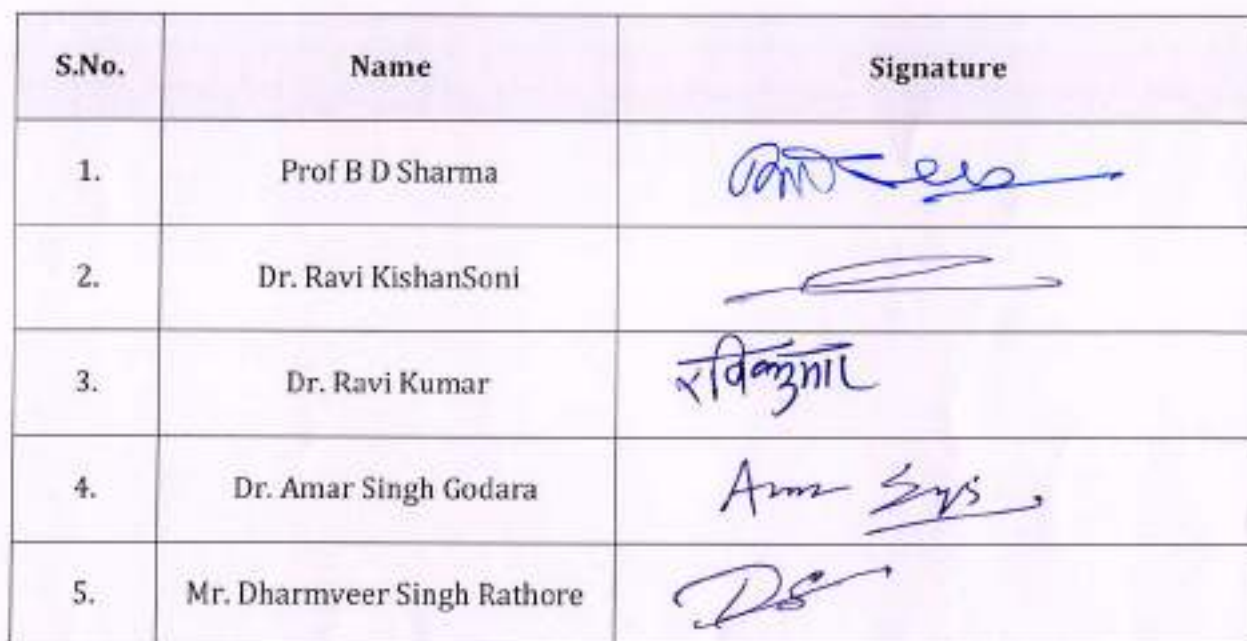 S.No. Name Signature
1. Prof B D Sharma
2. Dr. Ravi KishanSoni
3. Dr. Ravi Kumar रविकुमार
4. Dr. Amar Singh Godara
5. Mr. Dharmveer Singh Rathore DS